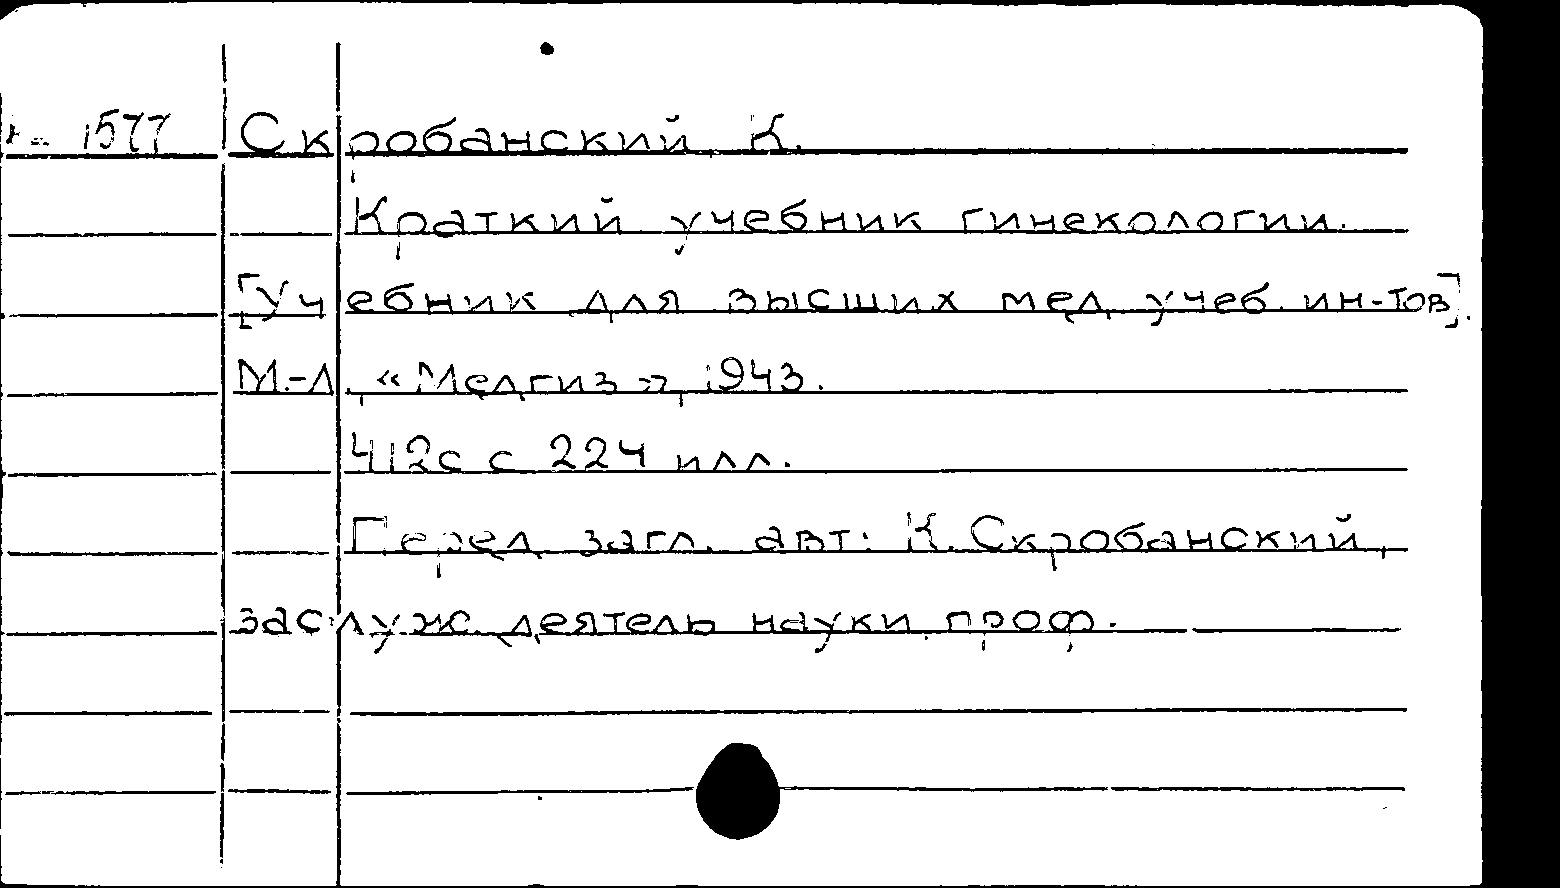 1577 Скробанский, К.
Краткий учебник гинекологии.
[Учебник для высших мед. учеб. ин-тов].
М.-Л., «Медгиз», 1943.
412с. с 224 илл.
Перед загл. авт: К. Скробанский,
заслуж. деятель науки, проф.